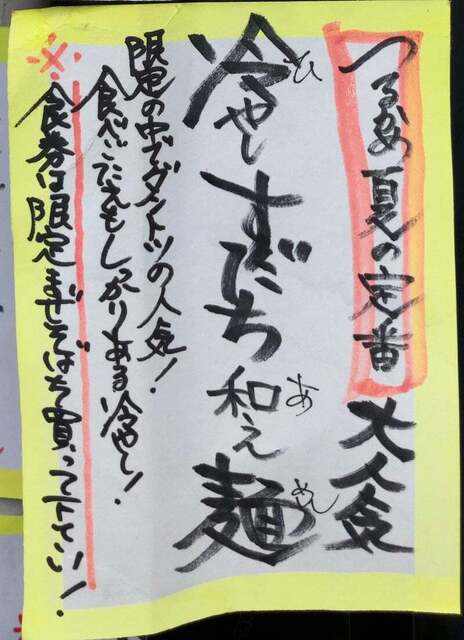 つるかめ夏の定番 大人気
冷やしすだち和え麺
ひ
あ
めん
限定の中でダントツの人気!
食べごたえもしっかりある冷やし!
※食券は限定まぜそばを買って下さい!